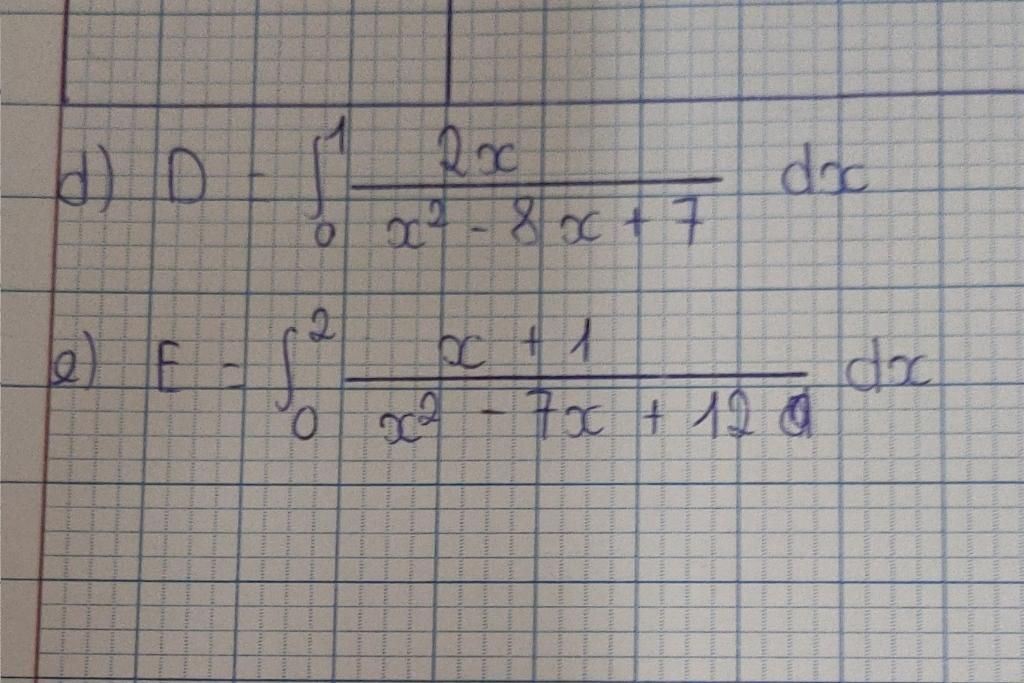 d) D = ∫₀¹ 2x / (x² - 8x + 7) dx
e) E = ∫₀² (x + 1) / (x² - 7x + 12) dx